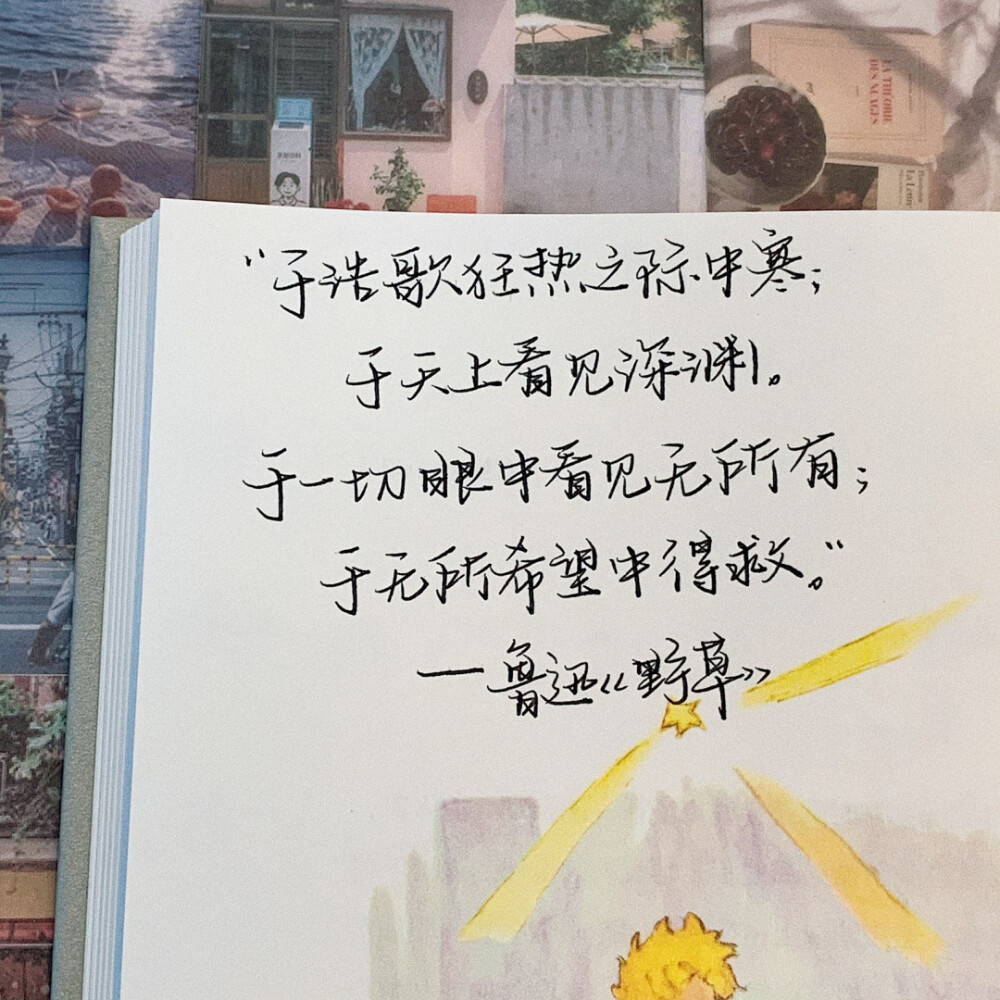 LA THÉORIE
DES NUAGES
La Lettre
“于浩歌狂热之际中寒；
于天上看见深渊。
于一切眼中看见无所有；
于无所希望中得救。”
—鲁迅《野草》